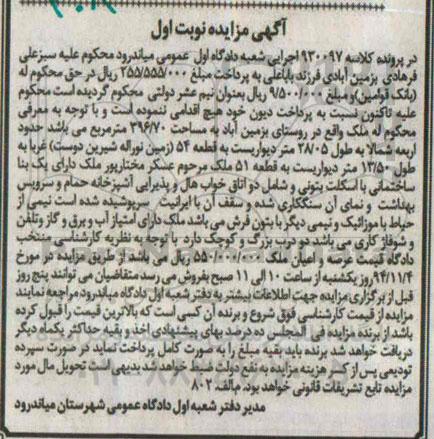 آگهی مزایده نوبت اول
در پرونده کلاسه ۹۳۰۰۹۷ اجرایی شعبه دادگاه اول عمومی میاندرود محکوم علیه سبزعلی
فرهادی بزمین آبادی فرزند باباعلی به پرداخت مبلغ ۲۵۵/۵۵۵/۰۰۰ ریال در حق محکوم له
(بانک قوامین) و مبلغ ۹/۵۰۰/۰۰۰ ریال بعنوان نیم عشر دولتی محکوم گردیده است محکوم
علیه تاکنون نسبت به پرداخت دیون خود هیچ اقدامی ننموده است و با توجه به معرفی
محکوم له ملک واقع در روستای بزمین آباد به مساحت ۳۹۶/۷۰ مترمربع می باشد حدود
اربعه شمالا به طول ۲۸/۰۵ متر دیواریست به قطعه ۵۴ (زمین نوراله شیرین دوست) غربا به
طول ۱۳/۵۰ متر دیواریست به قطعه ۵۱ ملک مرحوم عسکر مختارپور ملک دارای یک بنا
ساختمانی با اسکلت بتونی و شامل دو اتاق خواب هال و پذیرایی آشپزخانه حمام و سرویس
بهداشت و نمای آن سنگکاری شده و سقف آن با ایرانیت سرپوشیده شده است نیمی از
حیاط با موزائیک و نیمی دیگر با بتون فرش می باشد ملک دارای امتیاز آب و برق و گاز وتلفن
و شوفاژ کاری می باشد دو درب بزرگ و کوچک دارد با توجه به نظریه کارشناسی منتخب
دادگاه قیمت عرصه و اعیان ملک ۵۵۰/۰۰۰/۰۰۰ ریال می باشد از طریق مزایده در مورخ
۹۴/۱۱/۴ روز یکشنبه از ساعت ۱۰ الی ۱۱ صبح بفروش می رسد متقاضیان می توانند پنج روز
قبل از برگزاری مزایده جهت اطلاعات بیشتر به دفتر شعبه اول دادگاه میاندرود مراجعه نمایند
مزایده از قیمت کارشناسی فوق شروع و برنده آن کسی است که بالاترین قیمت را قبول کرده
باشد از برنده مزایده فی المجلس ده درصد بهای پیشنهادی اخذ و بقیه حداکثر یکماه دیگر
دریافت خواهد شد برنده باید بقیه مبلغ را به صورت کامل پرداخت نماید در صورت سپرده
تودیعی پس از کسر هزینه مزایده به نفع دولت ضبط خواهد شد بدیهی است تحویل مال مورد
مزایده تابع تشریفات قانونی خواهد بود. م/الف. ۸۰۲
مدیر دفتر شعبه اول دادگاه عمومی شهرستان میاندرود